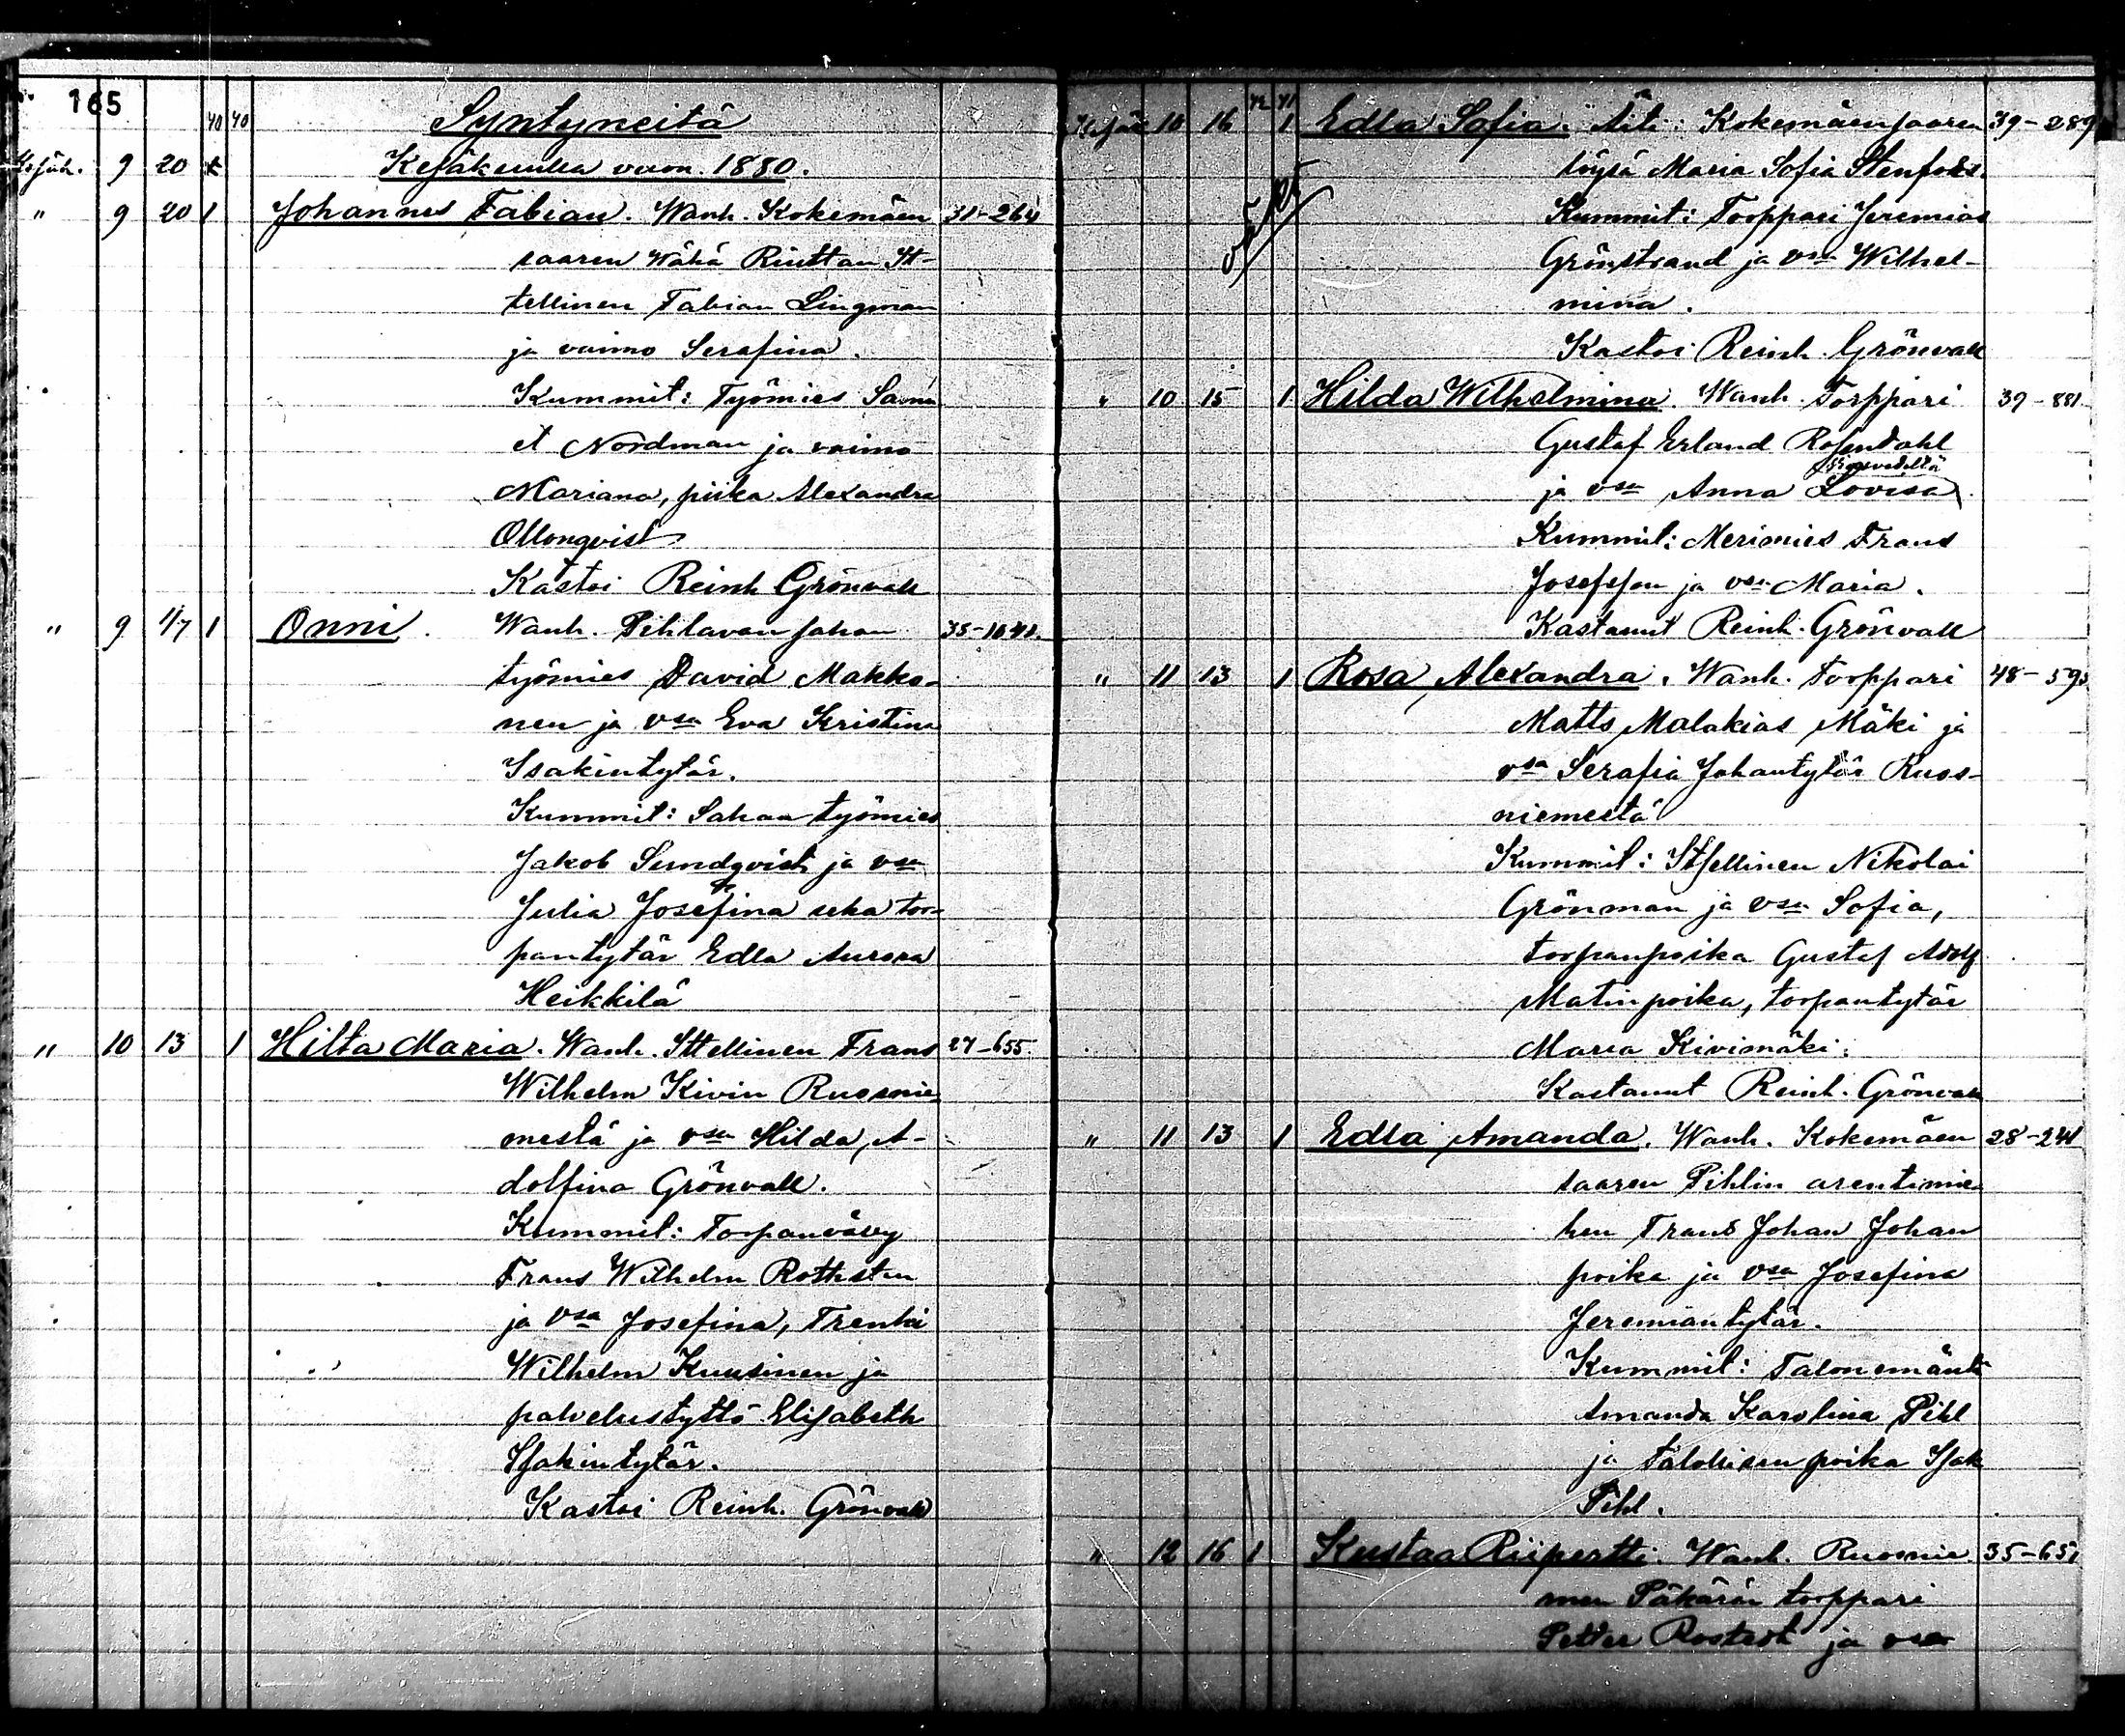 165
40 40 Syntyneitä
Kesäk. 9 20 Kesäkuulla vuon. 1880.
" 9 20 1 Johannes Fabian. Wanh. Kokemäen 31-264
saaren Wähä Riuttan It-
tellinen Fabian Lingman
ja vaimo Serafina.
Kummit: Työmies Samu
el Nordman ja vaimo
Mariana, piika Alexandra
Ollonqvist
Kastoi Reinh Grönvall
" 9 1/7 1 Onni. Wanh. Pihlavan sahan 35-1641.
työmies David Makko-
nen ja vsa Eva Kristina
Isakintytär.
Kummit: Sahan työmies
Jakob Sundqvist ja vsa
Julia Josefina seka tor-
pantytär Edla Aurora
Heikkilä
" 10 13 1 Hilta Maria. Wanh. Ittellinen Frans 27-655.
Wilhelm Kivin Ruosnie-
mestä ja vsa Hilda A-
dolfina Grönvall.
Kummit: Torpanvävy
Frans Wilhelm Rothsten
ja Vsa Josefina, Trenki
Wilhelm Kuusinen ja
palvelustyttö Elisabeth
Isakintytär.
Kastoi Reinh. Grönvall
42 41
Kesäk 10 16 1 Edla Sofia. Äiti: Kokemäensaaren 39-289
löysä Maria Sofia Stenfors.
Kummit: Torppari Jeremias
Grönstrand ja vsa Wilhel-
mina.
Kastoi Reinh. Grönvall
" 10 15 1 Hilda Wilhelmina. Wanh. Torppari 39-881.
Gustaf Erland Rosendahl
ja vsa Anna Lovisa
Kummit: Merimies Frans
Josefsson ja vsa Maria.
Kastanut Reinh. Grönvall
" 11 13 1 Rosa Alexandra. Wanh. Torppari 48-593
Matts Malakias Mäki ja
vsa Serafia Johantytär Ruos-
niemestä
Kummit: Itsellinen Nikolai
Grönman ja vsa Sofia,
torpanpoika Gustaf Adolf
Matinpoika, torpantytär
Maria Kivimäki.
Kastanut Reinh. Grönvall
" 11 13 1 Edla Amanda. Wanh. Kokemäen 28-241
saaren Pihlin arentimie-
hen Frans Johan Johan
poika ja vsa Josefina
Jeremiantytär.
Kummit: Talonemäntä
Amanda Karolina Pihl
ja talollisen poika Isak
Pihl.
" 12 16 1 Kustaa Riipertti. Wanh. Ruosnie 35-651
men Päkärän torppari
Petter Rostedt ja vsa